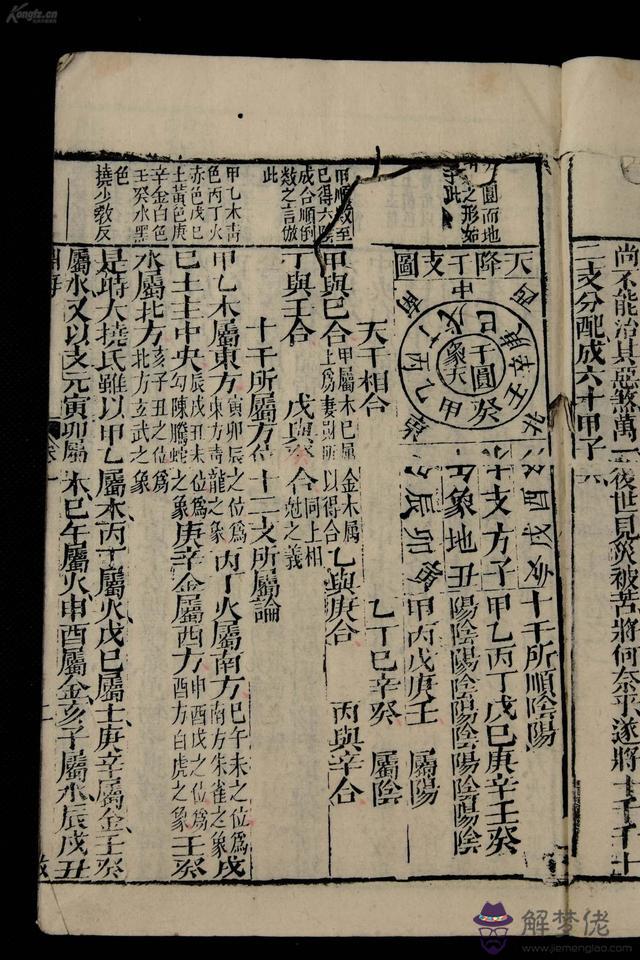 Kongfz.cn
尚不能治其惡煞萬一後世見災被苦將何奈乎遂將十干十
二支分配成六十甲子
天降干支圖
干圓象天
甲乙丙丁戊巳庚辛壬癸
東南中西北
支方象地
子丑寅卯辰
酉戌亥
十干所順陰陽
甲乙丙丁戊巳庚辛壬癸
陽陰陽陰陽陰陽陰陽陰
甲丙戊庚壬 屬陽
乙丁巳辛癸 屬陰
天干相合
甲與巳合 甲屬木巳屬土為妻財所以得合 乙與庚合 金木屬 丙與辛合
丁與壬合 戊與癸合 同上相尅之義
十干所屬方位十二支所屬論
甲乙木屬東方 寅卯辰之位為東方青龍之象 丙丁火屬南方 巳午未之位為南方朱雀之象 戊
巳土主中央 辰戌丑未位為勾陳螣蛇之象 庚辛金屬西方 申酉戌之位為酉方白虎之象 壬癸
水屬北方 亥子丑之位為北方玄武之象
是時大撓氏雖以甲乙屬木丙丁屬火戊巳屬土庚辛屬金壬癸
屬水又以支元寅卯屬木巳午屬火申酉屬金亥子屬水辰戌丑
圓而地
之形如
此
甲順數至
巳得六
成合順倒
數之言倣
此
甲乙木青
色丙丁火
赤色戊巳
土黃色庚
辛金白色
壬癸水黑
色
撓少教反
淵海
卷一
二
解梦佬
www.jiemenglao.com